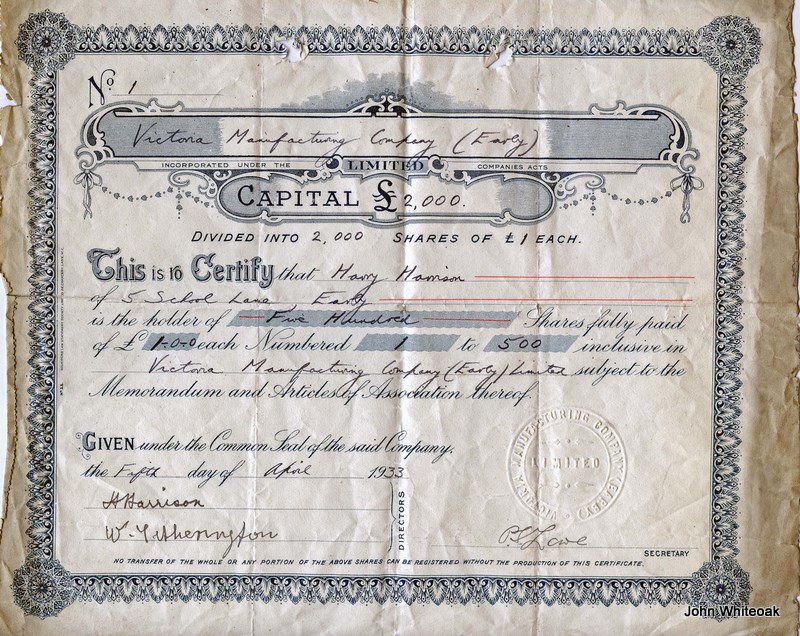 No 1
Victoria Manufacturing Company (Early)
INCORPORATED UNDER THE LIMITED COMPANIES ACTS
CAPITAL £2,000.
DIVIDED INTO 2,000 SHARES OF £1 EACH.
This is to Certify that Harry Harrison
of 5 School Lane, Early
is the holder of Five Hundred Shares fully paid
of £ 1-0-0 each Numbered 1 to 500 inclusive in
Victoria Manufacturing Company (Early) Limited subject to the
Memorandum and Articles of Association thereof.
GIVEN under the Common Seal of the said Company,
the Fifth day of April 1933
H Harrison
W. Titherington
DIRECTORS
VICTORIA MANUFACTURING COMPANY (EARBY)
LIMITED
Lowe
SECRETARY
NO TRANSFER OF THE WHOLE OR ANY PORTION OF THE ABOVE SHARES CAN BE REGISTERED WITHOUT THE PRODUCTION OF THIS CERTIFICATE.
John Whiteoak